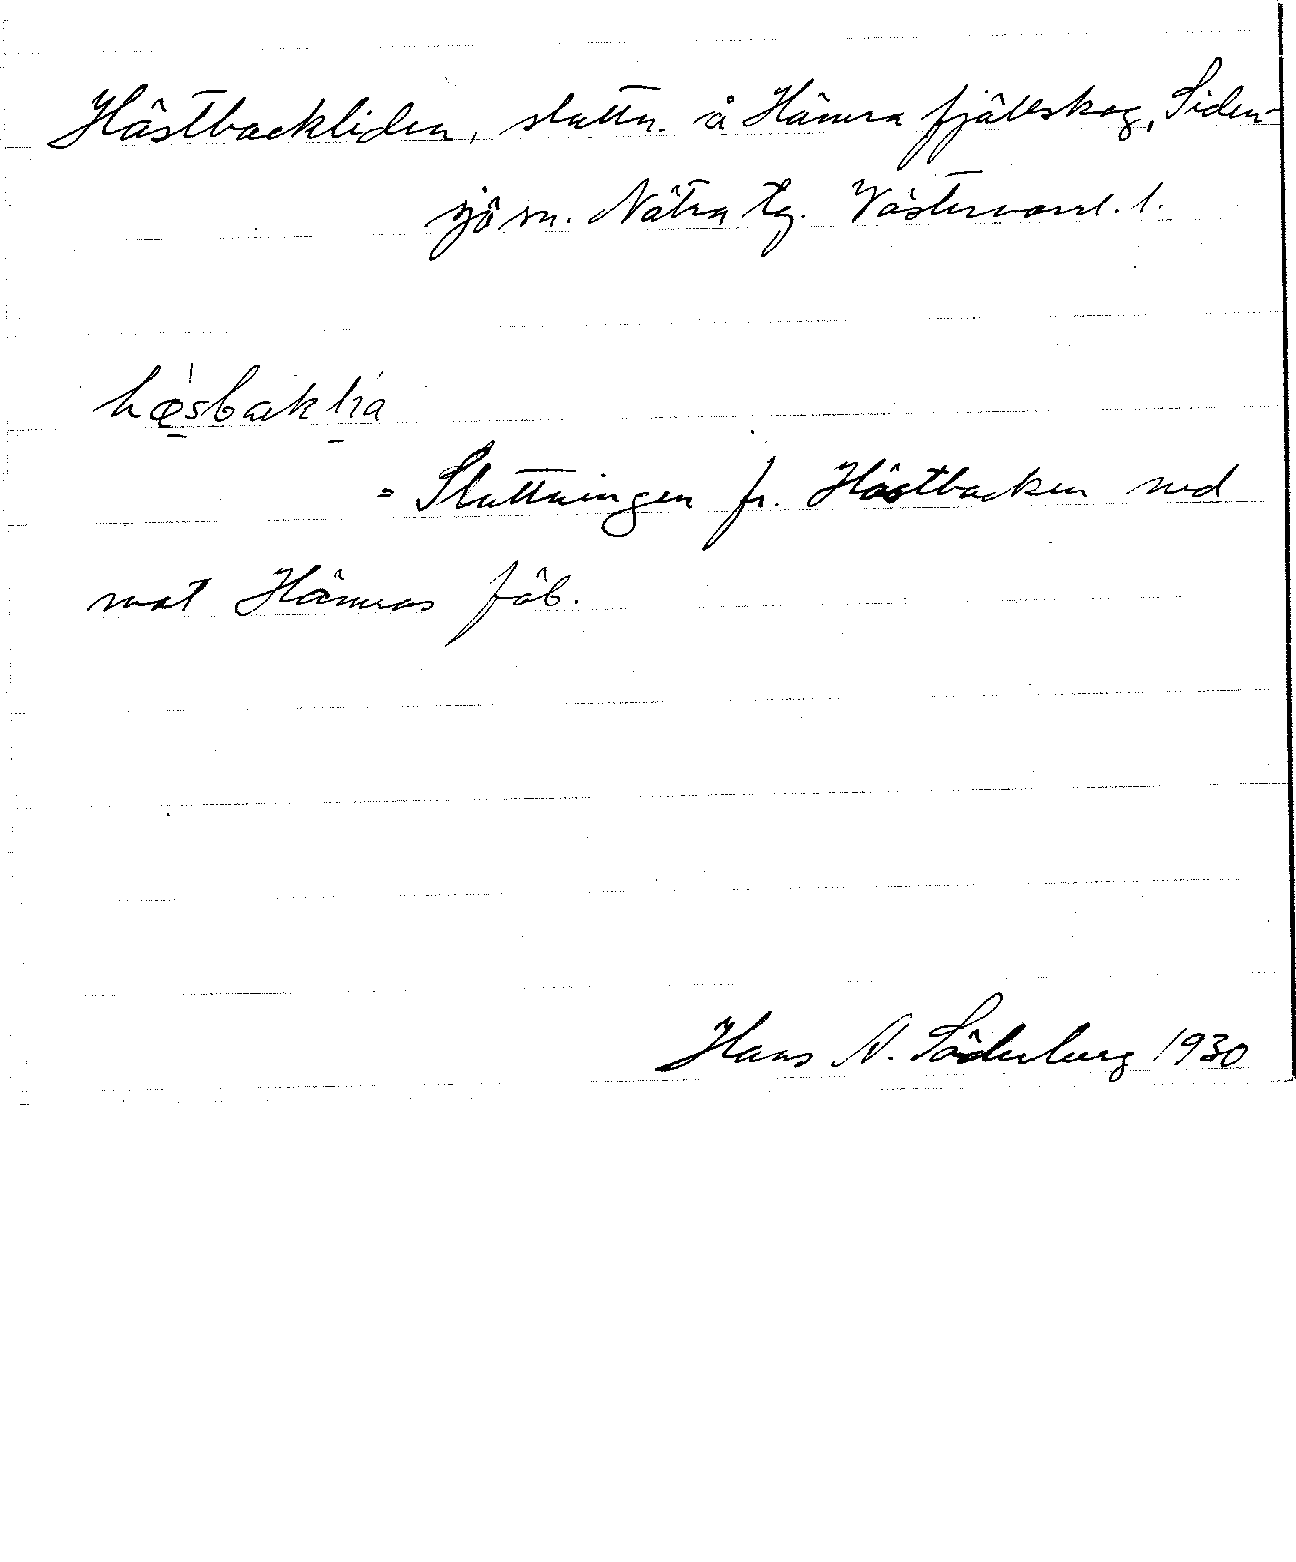 Hästbackliden, sluttn. å Hämra fjällskog, Siden-
sjö sn. Nätra tg. Västernorrl. l.
hæsbaklia
= Sluttningen fr. Hästbacken ned
mot Hämras fäb.
Hans N. Söderberg 1930